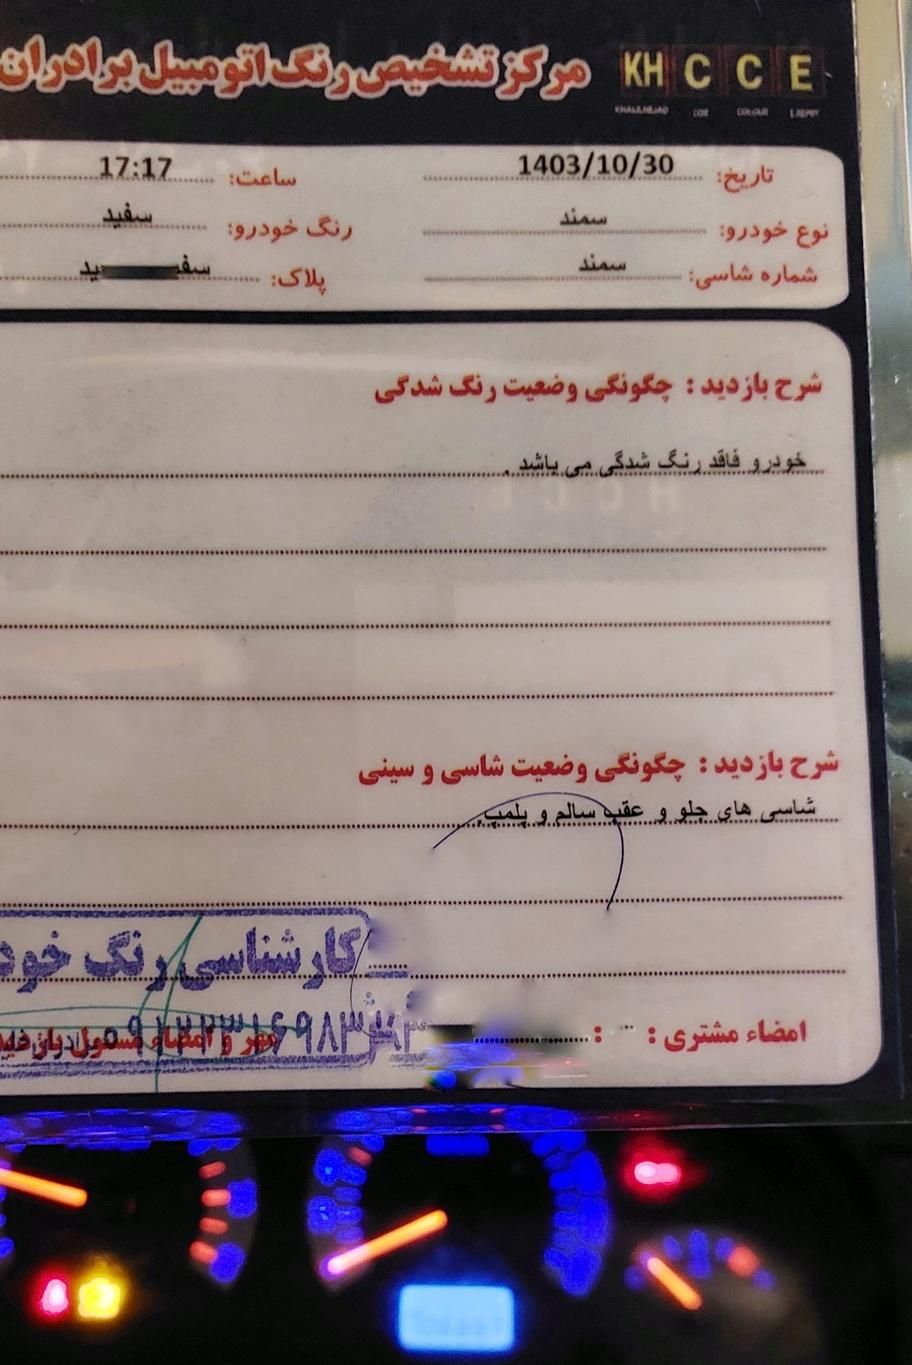 مرکز تشخیص رنگ اتومبیل برادران
KH C C E
KHALILNEJAD COLOUR
تاریخ: 1403/10/30 ساعت: 17:17
نوع خودرو: سمند رنگ خودرو: سفید
شماره شاسی: سمند پلاک:
شرح بازدید : چگونگی وضعیت رنگ شدگی
خودرو فاقد رنگ شدگی می باشد .
شرح بازدید : چگونگی وضعیت شاسی و سینی
شاسی های جلو و عقب سالم و پلمپ.
کارشناسی رنگ خود
امضاء مشتری :
مهر و امضاء مسئول